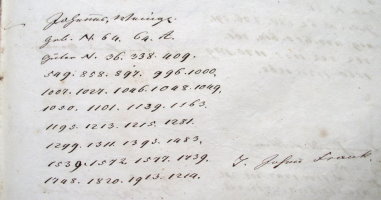 Johannes
Geb. N. 64. 64. A.
Güter N. 36. 338. 409.
549. 858. 897. 996. 1000,
1007. 1027. 1046. 1048. 1049,
1050. 1101. 1139. 1163.
1193. 1213. 1215. 1281.
1299. 1311. 1393. 1483.
1539. 1572. 1577. 1739.
1748. 1820. 1913. 1214.
T. Johan Frank.